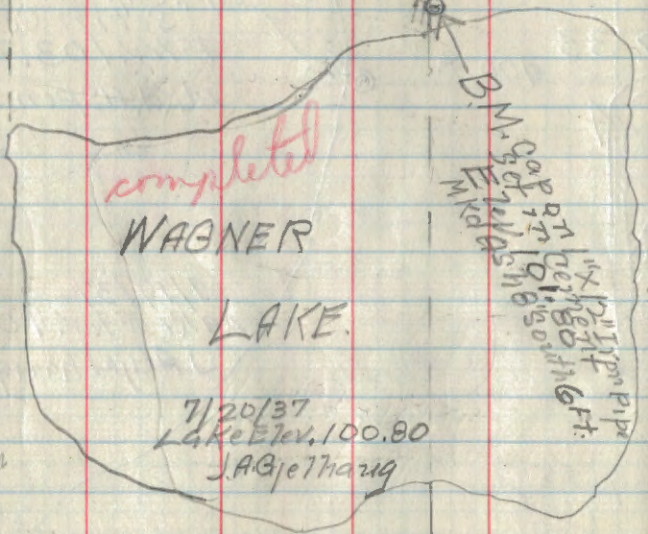 completed
WAGNER
LAKE.
7/20/37
Lake Elev. 100.80
J.A.Gjelhaug
B.M. Cap on 1"x12" Iron pipe
set in cement
Elev. 101.80
Mkd
South 6 ft.